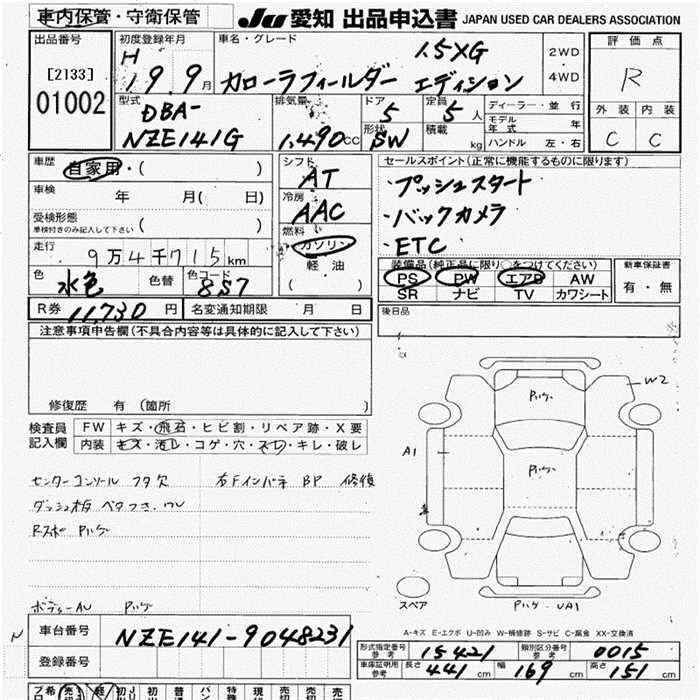 車内保管・守衛保管
JU 愛知 出品申込書 JAPAN USED CAR DEALERS ASSOCIATION
出品番号
[2133]
01002
初度登録年月
H 19.9月
車名・グレード
1.5XG
カローラフィールダー エディション
2WD
4WD
評価点
R
外装 内装
C C
型式
DBA-
NZE141G
排気量
1,490cc
ドア
5
形状
SW
定員
5人
積載
kg
ディーラー・並行
モデル年式 年
ハンドル 左・右
車歴
自家用・( )
車検
年 月( 日)
受検形態
車検付きのみ記入して下さい ( )
走行
9万4千715km
色
水色
色替
色コード
8S7
シフト
AT
冷房
AAC
燃料
ガソリン
軽油
( )
セールスポイント(正常に機能するものに限ります)
・プッシュスタート
・バックカメラ
・ETC
装備品(純正品に限り○をつけてください)
PS PW エアB AW
SR ナビ TV カワシート
新車保証書
有・無
R券 11,730円
名変通知期限 月 日
後日品
注意事項申告欄(不具合内容等は具体的に記入して下さい)
修復歴 有(箇所 )
検査員
記入欄
FW キズ・飛石・ヒビ割・リペア跡・X要
内装 キズ・汚レ・コゲ・穴・スレ・キレ・破レ
センターコンソール フタ欠
右Fインパネ BP 修復
ダッシュ板 ベタつき.ウレ
Rスポ Pハゲ
ボディーAU Pハゲ
Pハゲ
W2
A1
Pハゲ
スペア
Pハゲ・UA1
A-キズ E-エクボ U-凹み W-補修跡 S-サビ C-腐食 XX-交換済
車台番号
NZE141-9048231
登録番号
型式指定番号
参考
15421
類別区分番号
参考
0015
車庫証明用
参考
長さ 441cm 幅 169cm 高さ 151cm